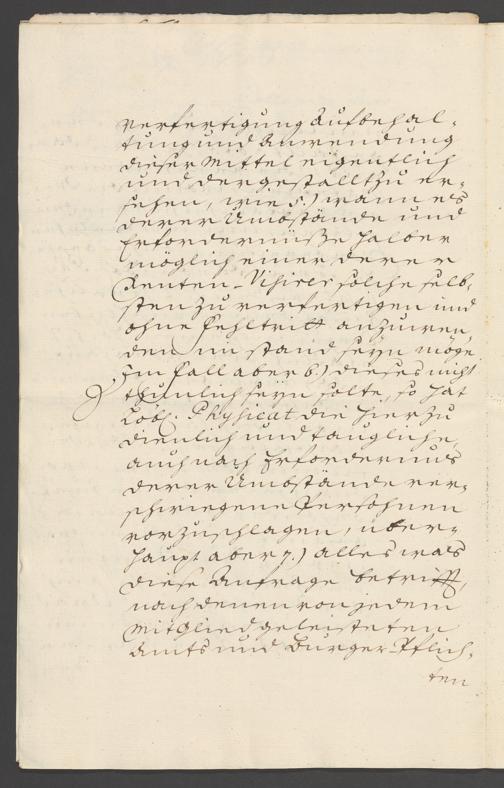 verfertigung Aufbehal-
tung und Anwendung
dieser Mittel eigentlich
und dergestallt zu er-
sehen, wie 5.) wann es
derer Umbstände und
Erfordernüße halber
möglich einer derer
Renten-Visirer solche selb-
sten zu verfertigen und
ohne Fehltritt anzuwen-
den im stand seyn möge
Im fall aber 6.) dieses nicht
thunlich seyn solte, so hat
Löbl. Physicat die hierzu
dienlich und taugliche,
auch nach Erfordernus
derer Umbstände ver-
schwiegene Persohnen
vorzuschlagen, über-
haupt aber 7.) alles was
diese Anfrage betrifft,
nach denen von jedem
Mitglied geleisteten
Amts und Burger-Pflich-
ten